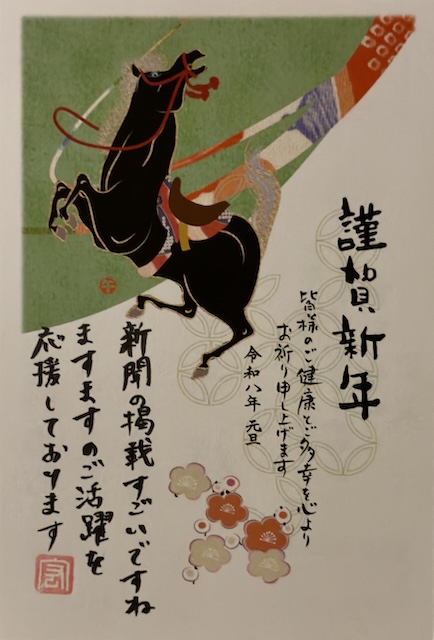 謹賀新年
皆様のご健康とご多幸を心より
お祈り申し上げます
令和八年 元旦
新聞の掲載すごいですね
ますますのご活躍を
応援しております
午